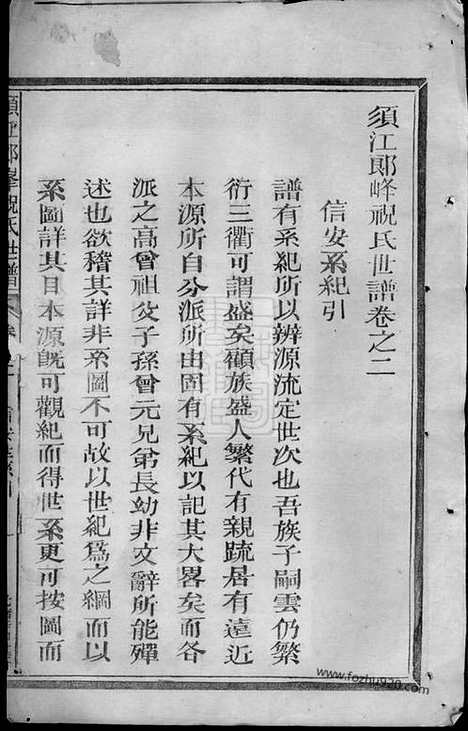 須江郎峰祝氏世譜卷之二
信安系紀引
譜有系紀所以辨源流定世次也吾族子嗣雲仍繁
衍三衢可謂盛矣顧族盛人繁代有親疏居有遠近
本源所自分派所由固有系紀以記其大畧矣而各
派之高曾祖父子孫曾元兄弟長幼非文辭所能殫
述也欲稽其詳非系圖不可故以世紀爲之綱而以
系圖詳其目本源旣可觀紀而得世系更可按圖而
須江郎峯祝氏世譜
www.fozhu920.com